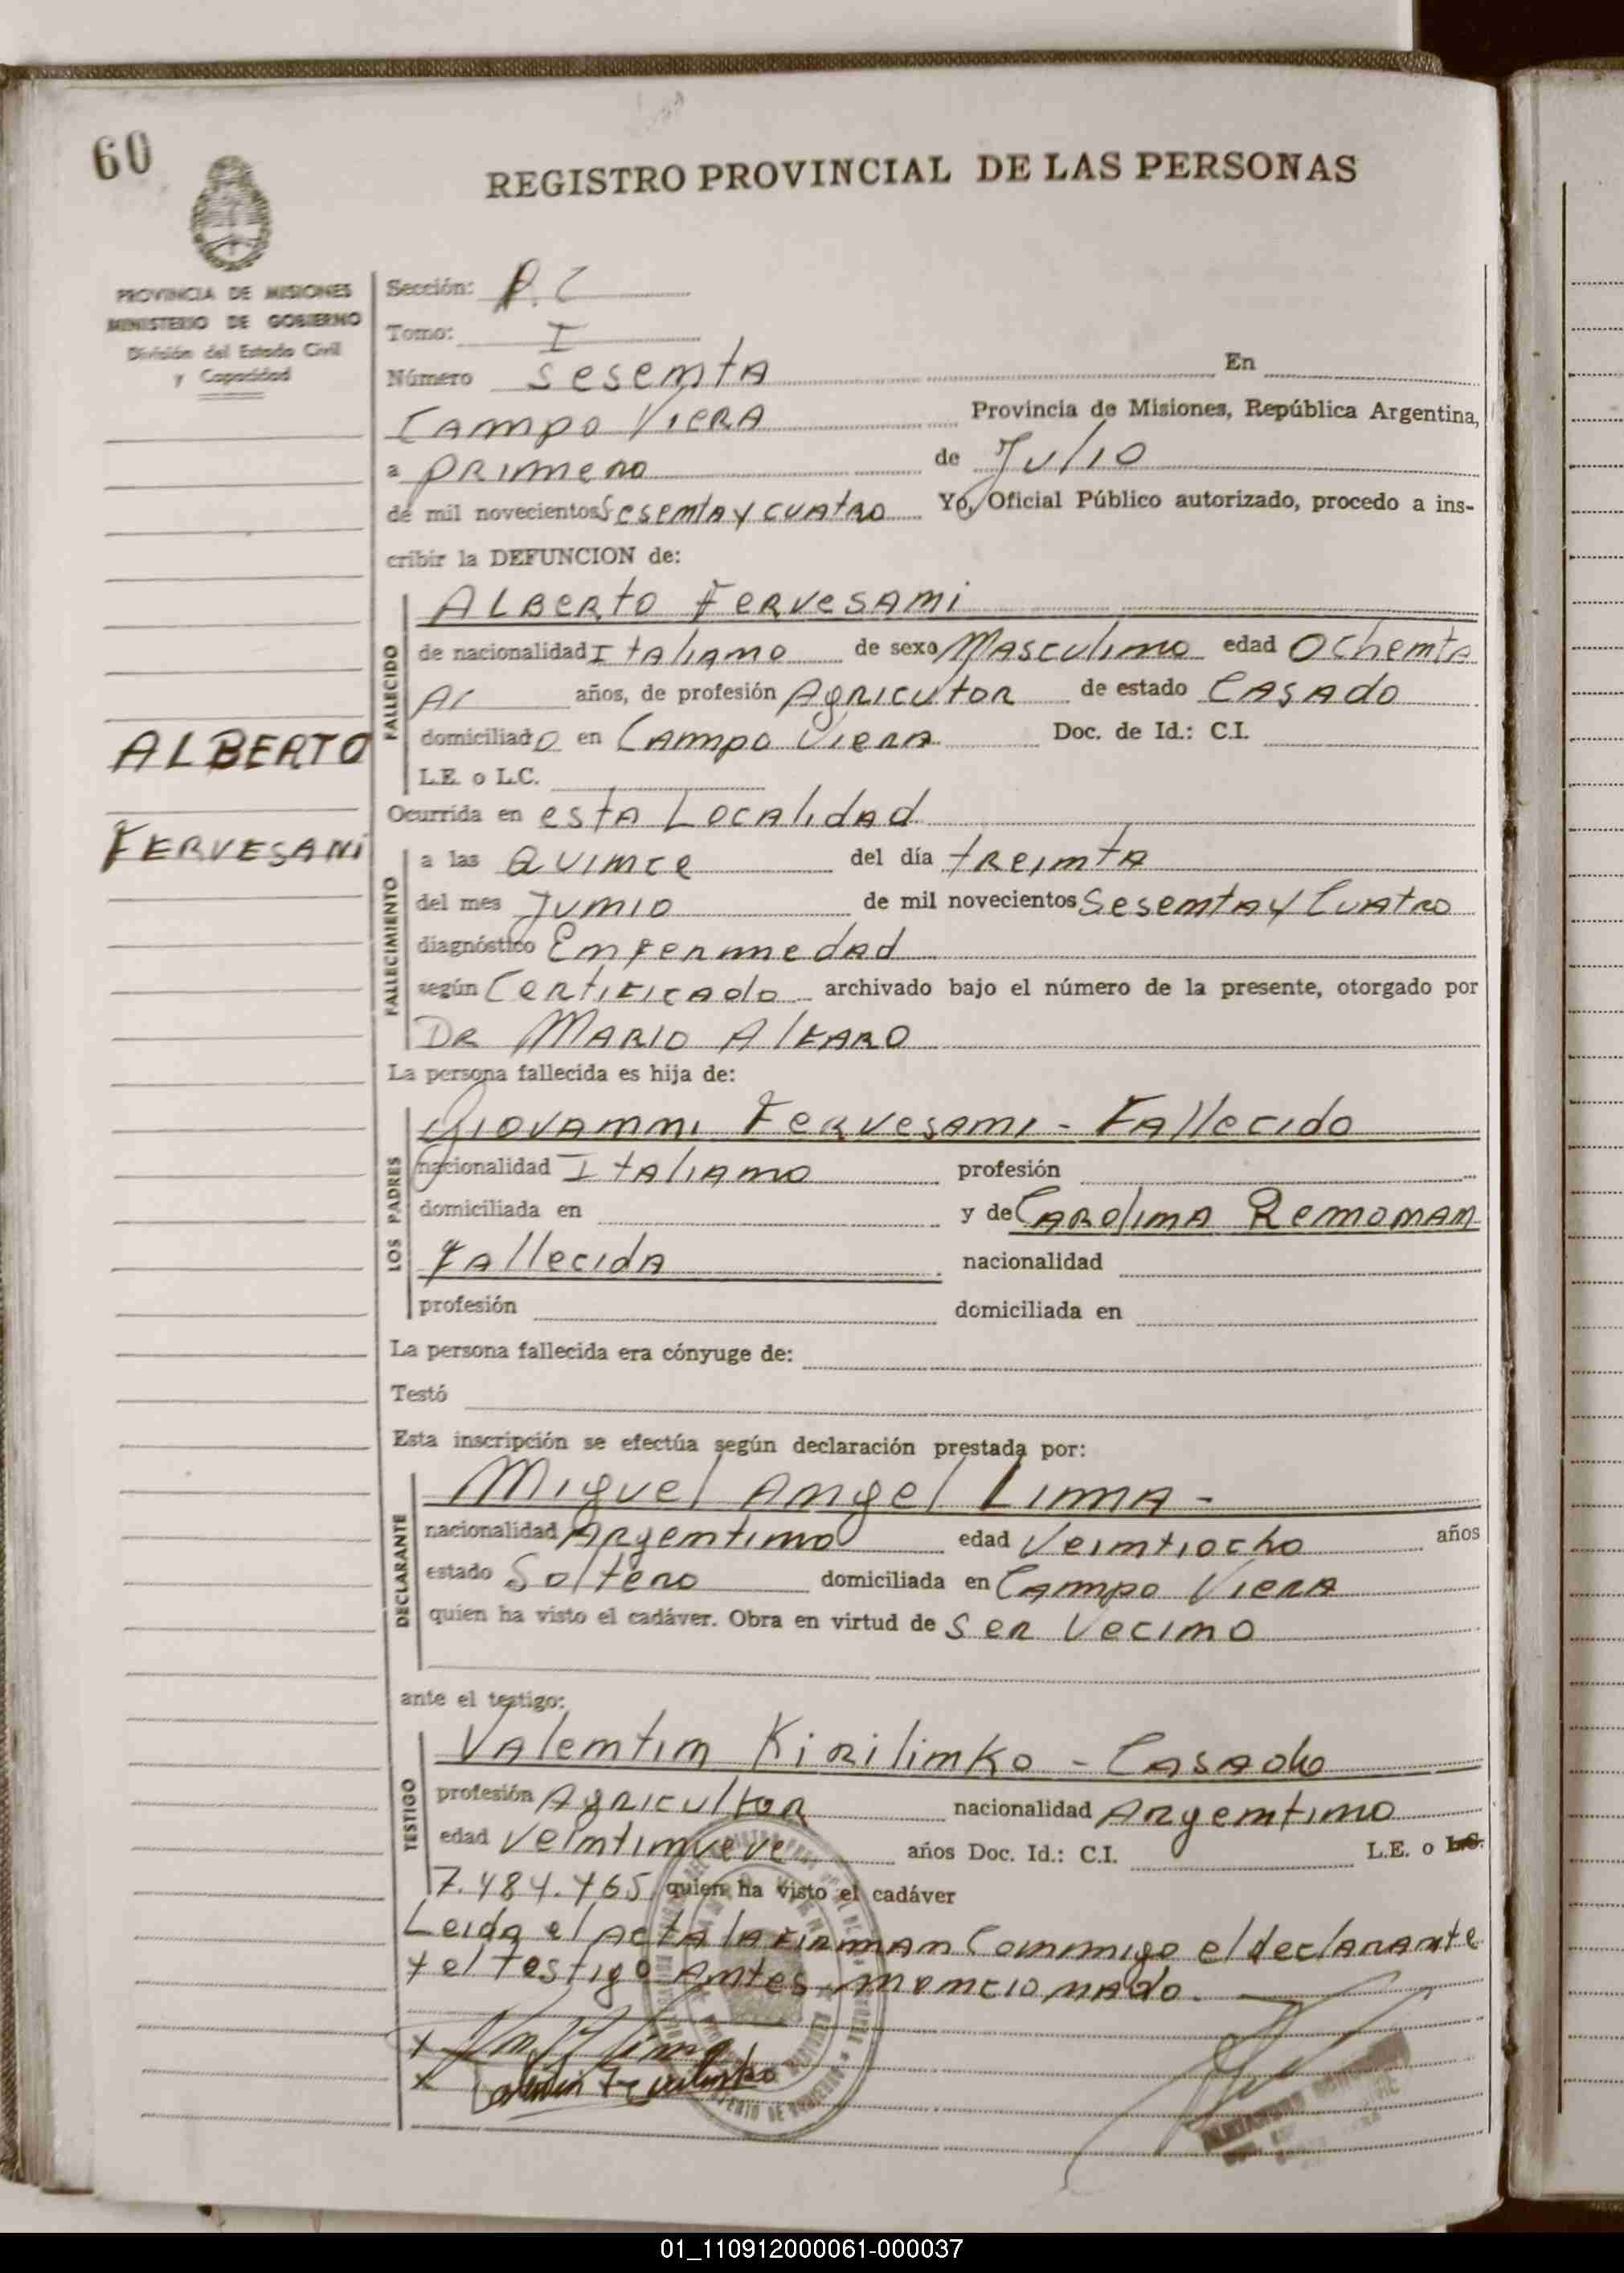 60
REGISTRO PROVINCIAL DE LAS PERSONAS
PROVINCIA DE MISIONES
MINISTERIO DE GOBIERNO
División del Estado Civil
y Capacidad
Sección:
Tomo: I
Número sesenta En
Campo Viera Provincia de Misiones, República Argentina,
a primero de Julio
de mil novecientos Sesenta y cuatro Yo, Oficial Público autorizado, procedo a ins-
cribir la DEFUNCION de:
FALLECIDO
Alberto Fervesani
de nacionalidad Italiano de sexo Masculino edad Ochenta
años, de profesión Agricutor de estado Casado
domiciliado en Campo Viera Doc. de Id.: C.I.
L.E. o L.C.
ALBERTO
FERVESANI
Ocurrida en esta Localidad
FALLECIMIENTO
a las Quince del día treinta
del mes Junio de mil novecientos Sesenta y Cuatro
diagnóstico Enfermedad
según Certificado archivado bajo el número de la presente, otorgado por
Dr Mario Alfaro
La persona fallecida es hija de:
LOS PADRES
Giovanni Fervesani - Fallecido
nacionalidad Italiano profesión
domiciliada en y de Carolina Renoman
Fallecida nacionalidad
profesión domiciliada en
La persona fallecida era cónyuge de:
Testó
Esta inscripción se efectúa según declaración prestada por:
DECLARANTE
Miguel Angel Linna -
nacionalidad Argentino edad Veintiocho años
estado Soltero domiciliada en Campo Viera
quien ha visto el cadáver. Obra en virtud de Ser Vecino
ante el testigo:
TESTIGO
Valentin Kirilinko - Casado
profesión Agricultor nacionalidad Argentino
edad Veintinueve años Doc. Id.: C.I. L.E. o L.C.
7.484.465 quien ha visto el cadáver
Leida el acta la firman Conmigo el declarante
y el testigo antes mencionado.
01_110912000061-000037